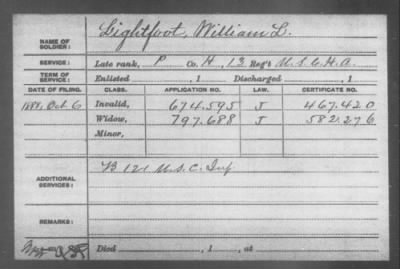 NAME OF SOLDIER: Lightfoot, William L.
SERVICE: Late rank, P Co. H, 13 Reg't U.S.C.H.A.
TERM OF SERVICE: Enlisted , 1 Discharged , 1
DATE OF FILING. CLASS. APPLICATION NO. LAW. CERTIFICATE NO.
1888, Oct. 6 Invalid, 674.595 J 467.420
Widow, 797.688 J 582.276
Minor,
ADDITIONAL SERVICES: B 121 U.S.C. Inf
REMARKS:
Died , 1 , at